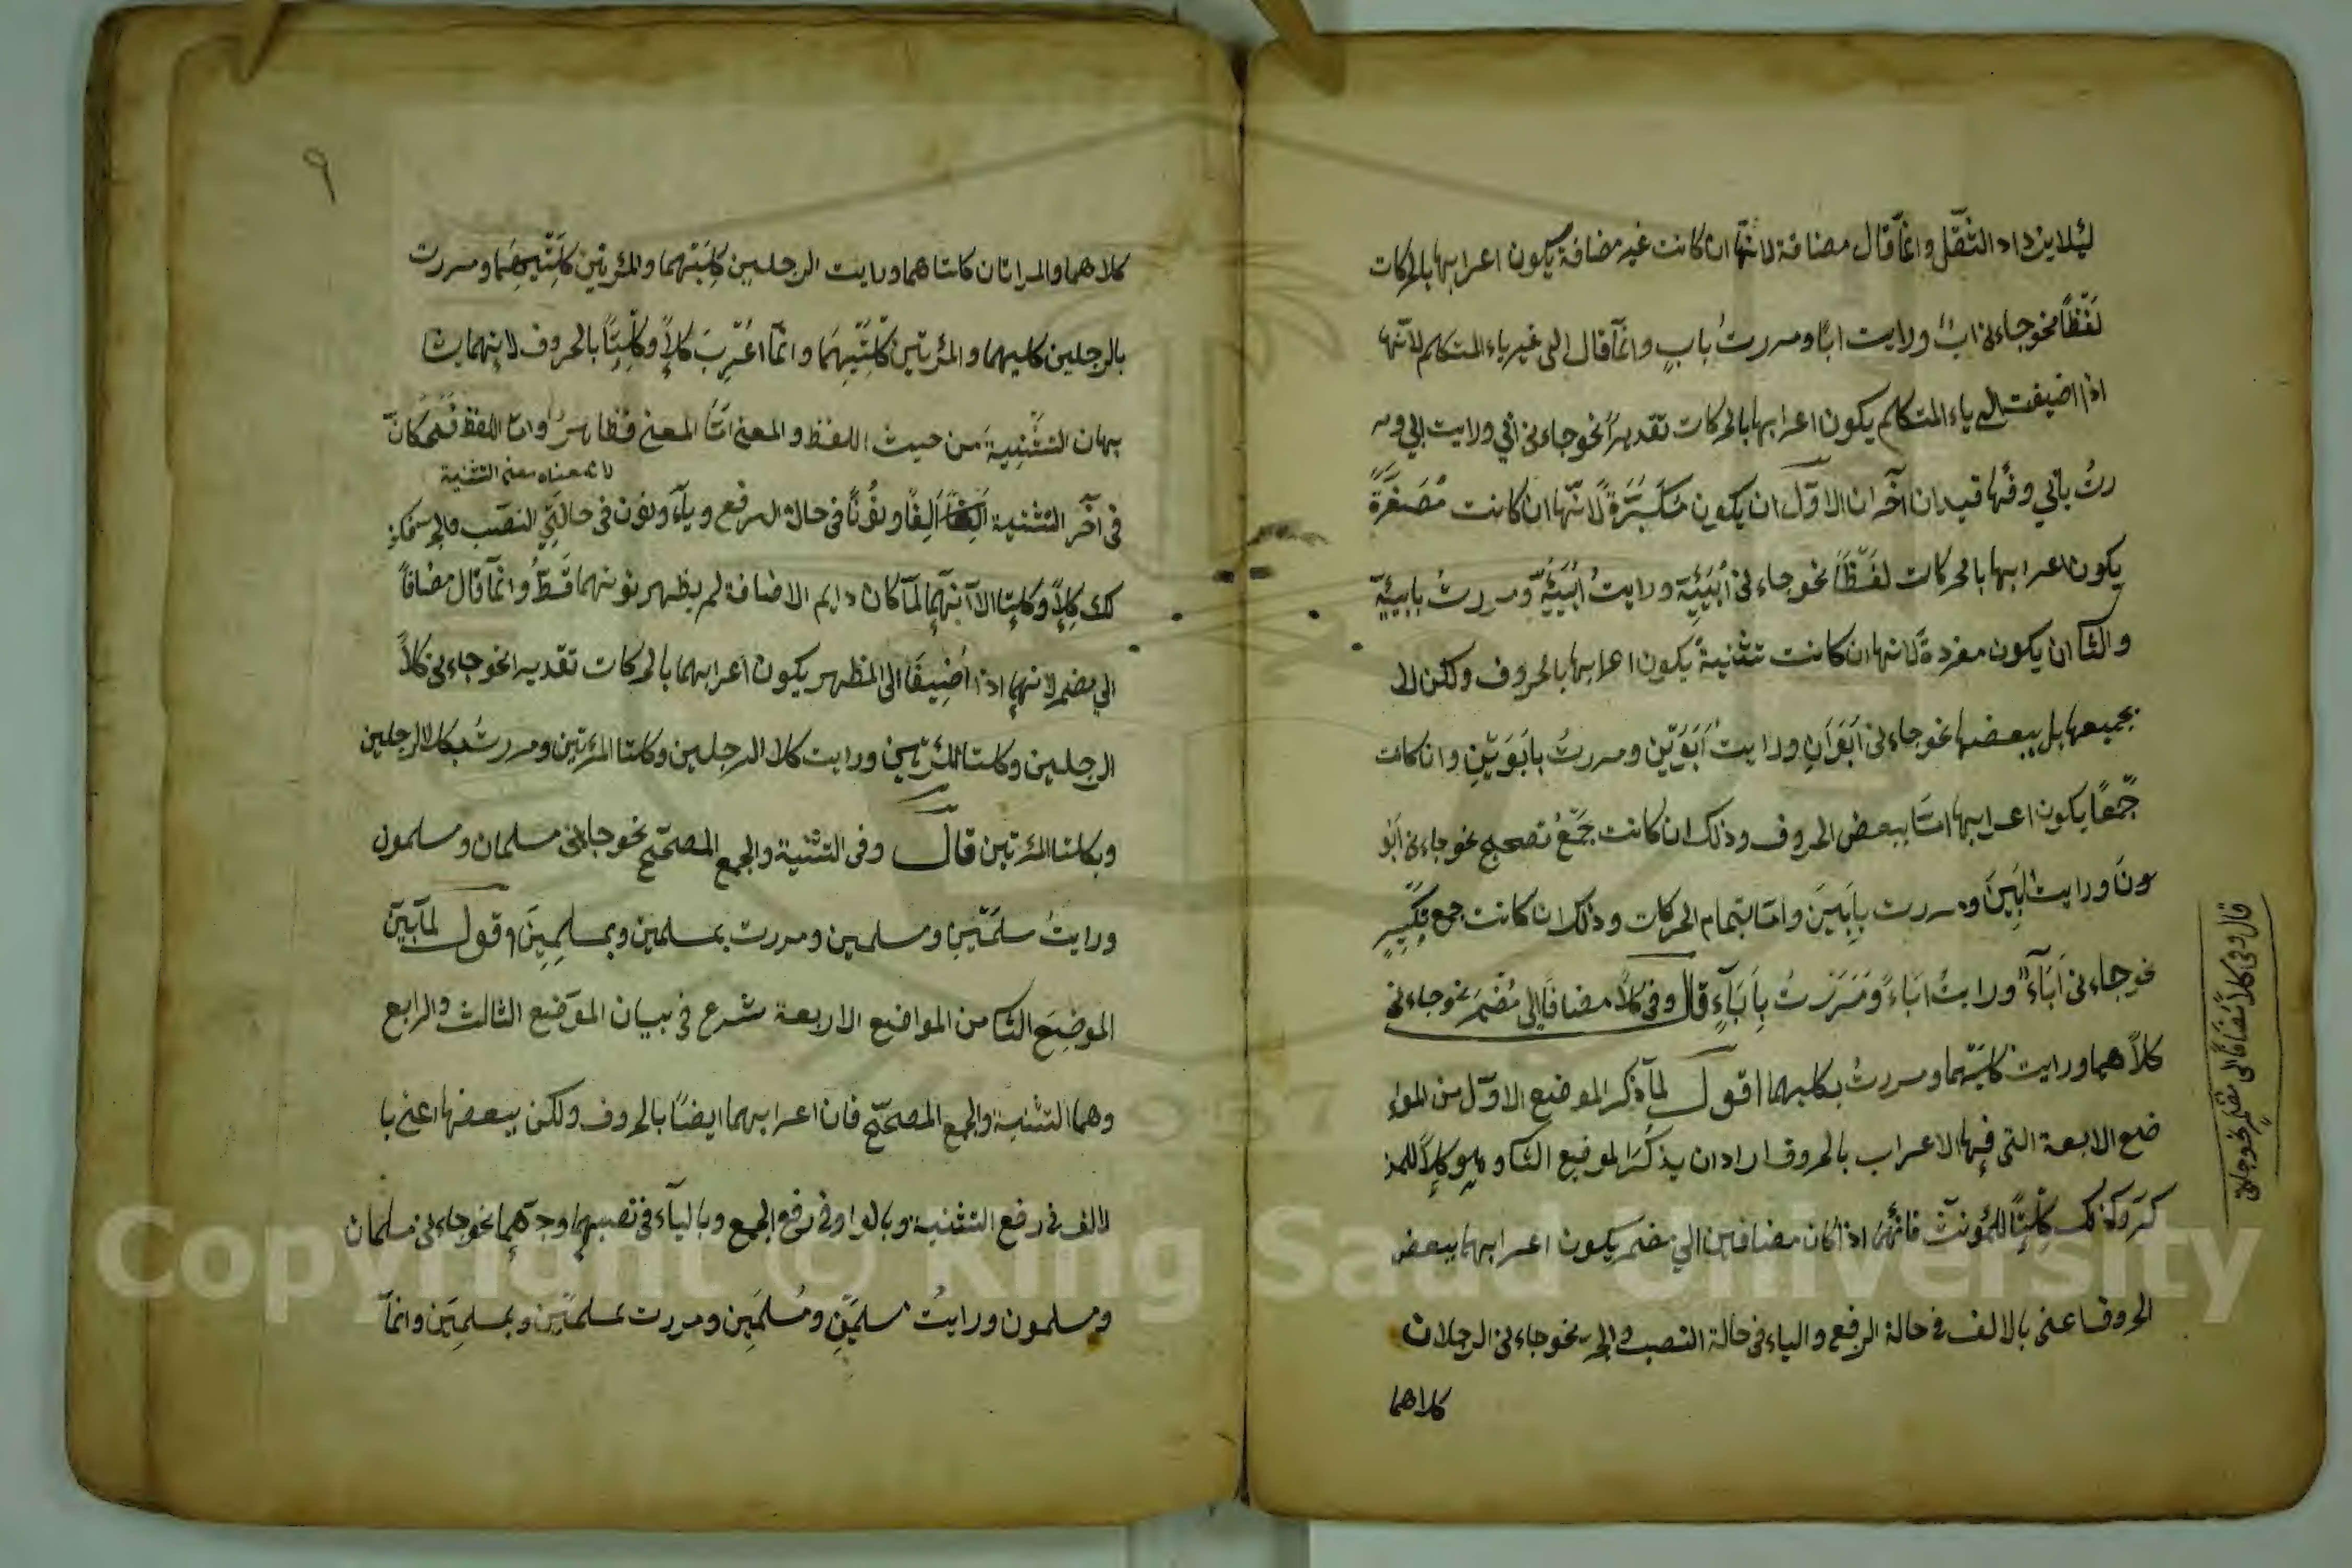 لئلا يزداد الثقل وانما قال مضافة لانها ان كانت غير مضافة يكون اعرابها بالحركات
لفظا نحو جاءنى ابٌ ورايت ابًا ومررتُ بابٍ وانما قال الى غير ياء المتكلم لانها
اذا اضيفت الى ياء المتكلم يكون اعرابها بالحركات تقديرا نحو جاءنى ابي ورايت ابي ومر
رتُ بابي وفيها قيدان آخران الاول ان يكون مكبّرةً لانها ان كانت مصغرة
يكون اعرابها بالحركات لفظا نحو جاءنى أُبَيَّة ورايت أُبَيَّة ومررتُ بابيّة
والثا ان يكون مفردة لانها ان كانت تثنية يكون اعرابها بالحروف ولكن لا
بجميعها بل ببعضها نحو جاءنى ابوان ورايت ابوين ومررتُ بابوين وان كانت
جمعًا يكون اعرابها امّا ببعض الحروف وذلك ان كانت جمعُ تصحيح نحو جاءنى ابو
ون ورايت ابين ومررت بابين وامّا بتمام الحركات وذلك ان كانت جمع تكسير
نحو جاءنى اباءٌ ورايت اباءً ومررتُ باباءٍ قال وفى كلا مضافا الى مضمر نحو جاءنى
كلاهما ورايت كليهما ومررتُ بكليهما اقول لما ذكر الموضع الاول من الموا
ضع الاربعة التى فيها الاعراب بالحروف اراد ان يذكر الموضع الثا وهو كلا للمذ
كر وكذلك كلتا للمؤنث فانهما اذا كان مضافين الى مضمر يكون اعرابهما ببعض
الحروف اعنى بالالف فى حالة الرفع والياء فى حالة النصب والجر نحو جاءنى الرجلان
كلاهما
قال وفى كلا مضافا الى مضمر نحو جاءنى
٩
كلاهما والمراتان كلتاهما ورايت الرجلين كليهما والمرئتين كلتيهما ومررت
بالرجلين كليهما والمرئتين كلتيهما وانما اعرب كلا وكلتا بالحروف لانهما يشا
بهان التثنية من حيث اللفظ والمعنى امّا المعنى فظاهر وامّا اللفظ فكان
لان معناه معنى التثنية
فى آخر التثنية الفا ونونا فى حالة الرفع وياء ونون فى حالتى النصب والجر فكذ
لك كلا وكلتا الا انهما لما كان دايم الاضافة لم يظهر نونهما قط وانما قال مضافا
الى مضمر لانهما اذا اضيفا الى المظهر يكون اعرابهما بالحركات تقديرا نحو جاءنى كلا
الرجلين وكلتا المرئتين ورايت كلا الرجلين وكلتا المرئتين ومررتُ بكلا الرجلين
وبكلتا المرئتين قال وفى التثنية والجمع المصحح نحو جاءنى مسلمان ومسلمون
ورايتُ مسلمين ومسلمين ومررت بمسلمين وبمسلمين اقول لما بين
الموضع الثا من المواضع الاربعة شرع فى بيان الموضع الثالث والرابع
وهما التثنية والجمع المصحح فان اعرابهما ايضا بالحروف ولكن ببعضها اعنى با
لالف فى رفع التثنية وبالواو فى رفع الجمع وبالياء فى نصبهما وجرهما نحو جاءنى مسلمان
ومسلمون ورايتُ مسلمين ومسلمين ومررت بمسلمين وبمسلمين وانما
Copyright © King Saud University